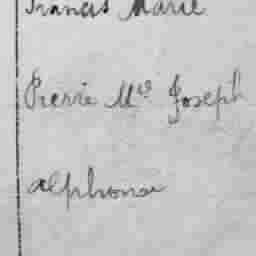 Francis Marie
Pierre Mie Joseph
Alphonse